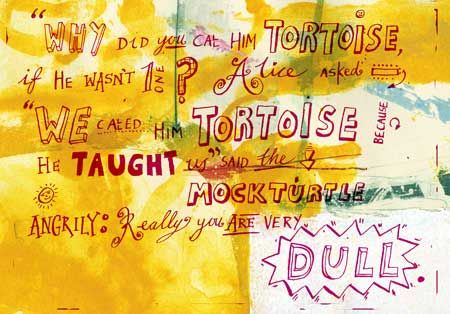 "WHY DiD you CALL HIM TORTOISE,
if HE WASN'T 1 ONE? Alice asked
"WE CALLED HIM TORTOISE BECAUSE
HE TAUGHT us" SAID the
MOCKTURTLE
ANGRILY: Really you ARE VERY
DULL